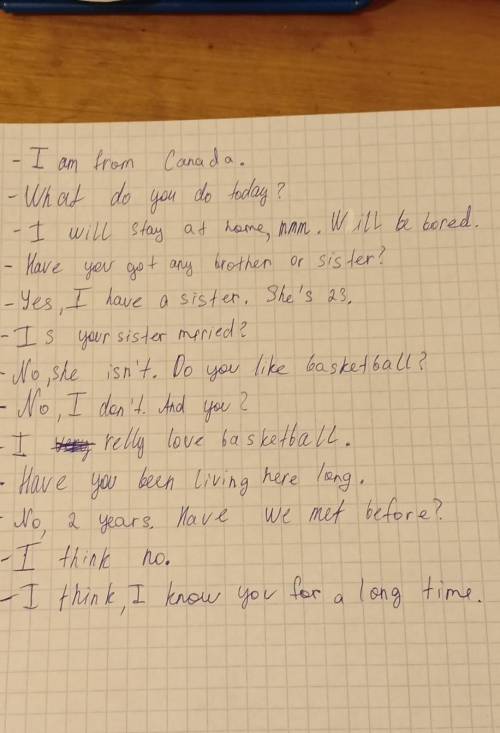 - I am from Canada.
- What do you do today?
- I will stay at home, mmm. Will be bored.
- Have you got any brother or sister?
- Yes, I have a sister. She's 23.
- Is your sister mrried?
- No, she isn't. Do you like basketball?
- No, I don't. And you?
- I relly love basketball.
- Have you been living here long.
- No, 2 years. Have we met before?
- I think no.
- I think, I know you for a long time.